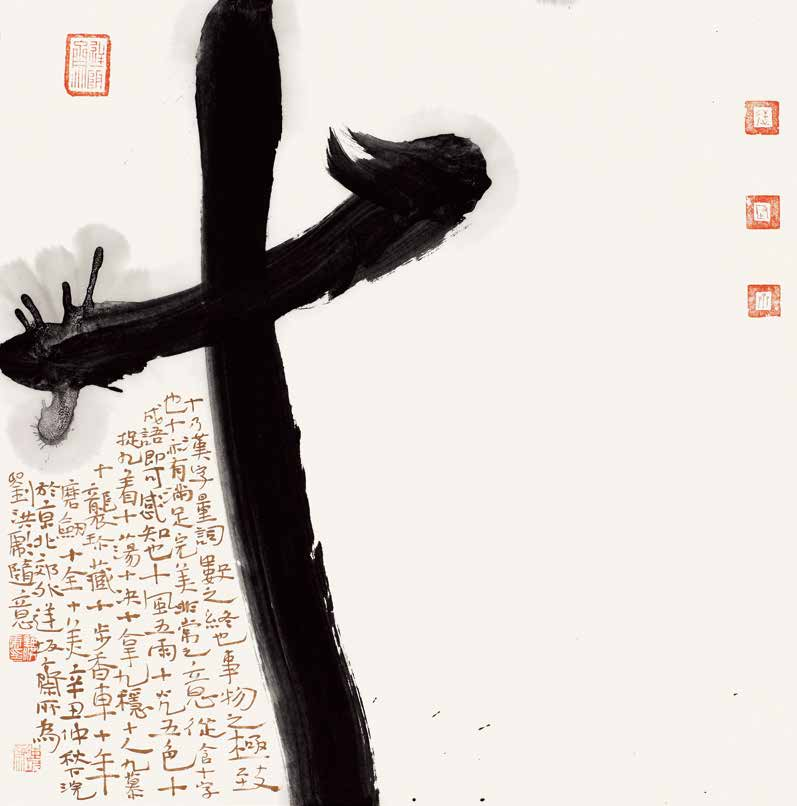 十
十乃漢字量詞數之終也事物之極致
也十亦有滿足完美非常之意從含十字
成語即可感知也十風五雨十光五色十
捉九着十蕩十決十拿九穩十人九慕
十襲珍藏十步香車十年
磨劍十全十美辛丑仲秋下浣
於京北郊外逆坂齋所為
劉洪彪隨意